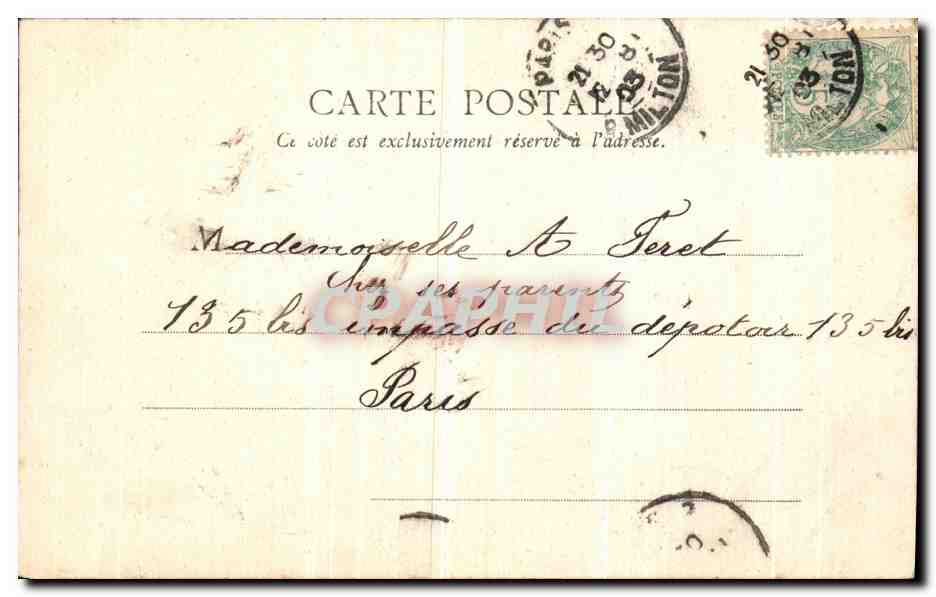 CARTE POSTALE
Ce côté est exclusivement réservé à l'adresse.
PARIS
21 30
12 8
03
R. MILTON
21 30
8
03
MILTON
Mademoiselle A Feret
Chez ses parents
135 bis impasse du dépotoir 135 bis
Paris
CPAPHIL